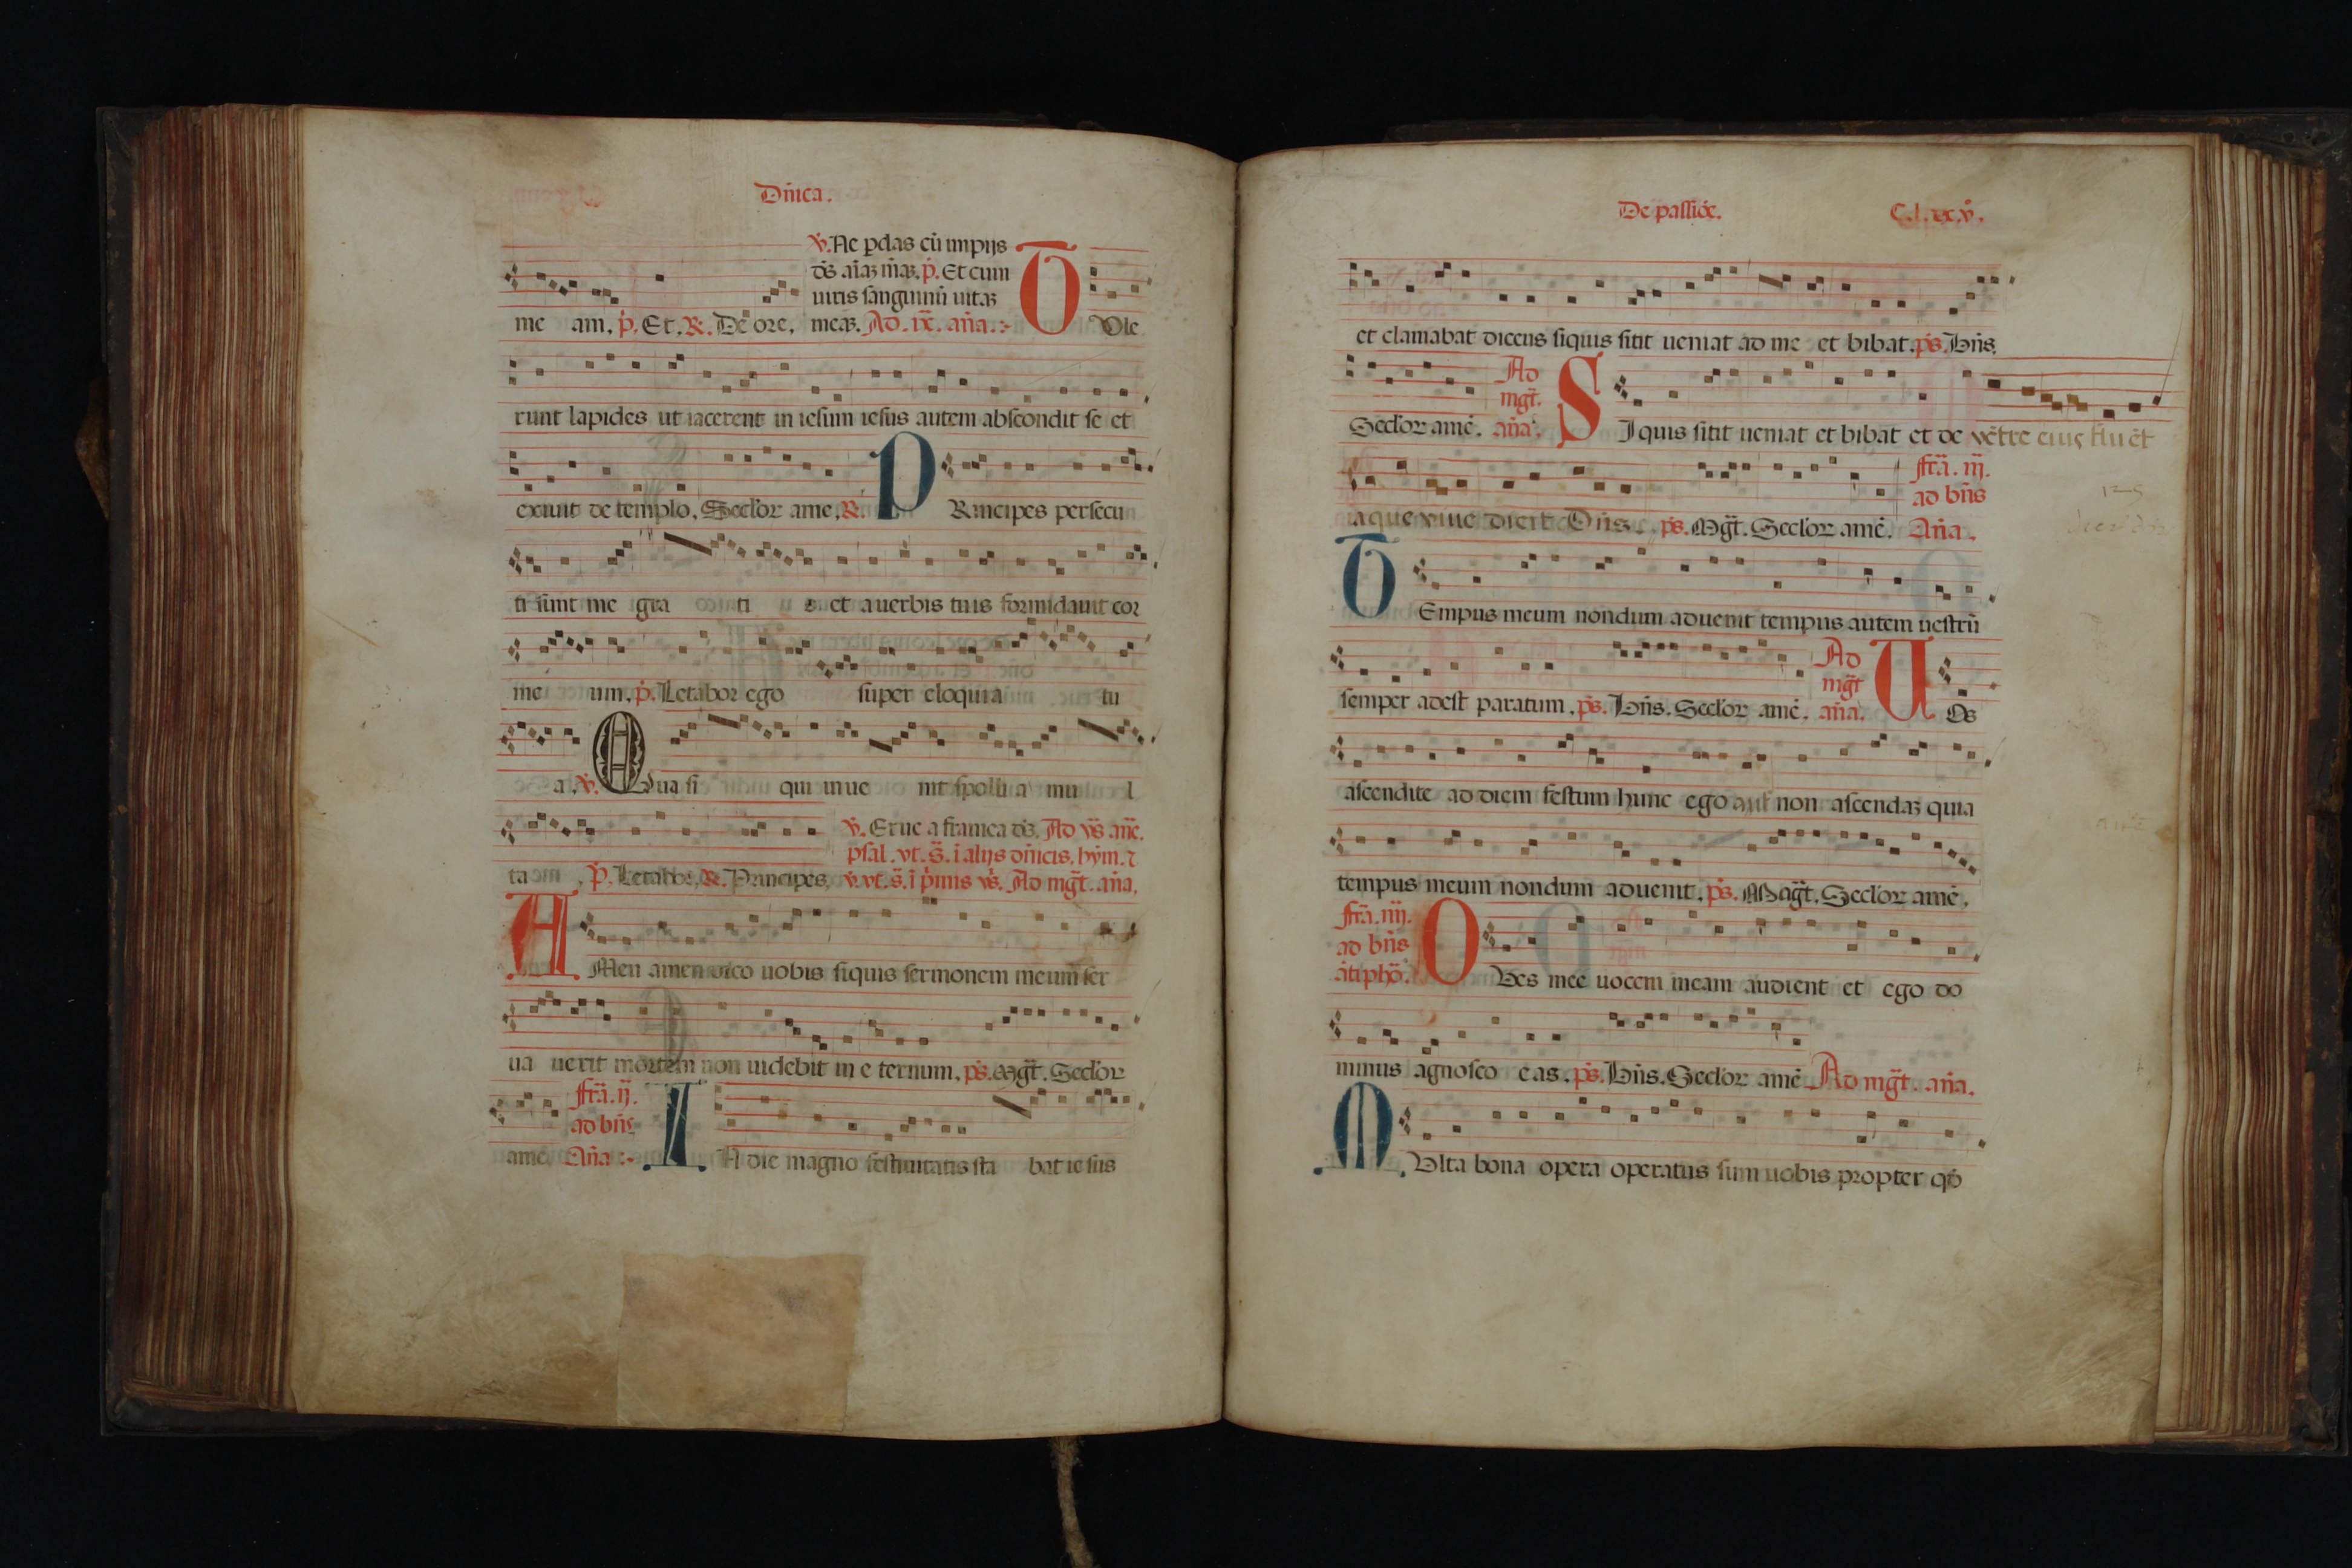 Dn̄ica.
ꝟ. Ne ꝑdas cū impijs
d̄s aīaꝫ m̄aꝫ. p̄. Et cum
uiris sanguinū uitaꝫ
me am. p̄. Et. ℟. De ore. meaꝫ. Ad. ix. an̄a. T Vle
runt lapides ut iacerent in iesum iesus autem abscondit se et
exiuit de templo. Seclor ame. ℟. P Rincipes persecu
ti sunt me gra ti s et a uerbis tuis formidauit cor
me um. p̄. Letabor ego super eloquia tu
a. ꝟ. Qua si qui inue nit spolli a mu l
ꝟ. Erue a framea d̄s. Ad v̄s an̄e.
psal. vt. s̄. ī alijs dn̄icis. hym. ⁊
ta p̄. Letabor. ℟. Principes. ꝟ. vt. s̄. ī p̄mis v̄s. Ad mḡt. an̄a.
A Men amen dico uobis siquis sermonem meum ser
ua uerit mortem non uidebit in e ternum. ps̄. Mḡt. Seclor
fr̄a. ij.
ad bn̄s
ame. An̄a I N die magno festiuitatis sta bat ie sus
De passiōe. C.l.xx.v.
et clamabat dicens siquis sitit ueniat ad me et bibat. ps̄. Bn̄s.
Ad
mḡt.
Seclor amē. an̄a. S I quis sitit ueniat et bibat et de vētre eius fluēt
fr̄a. iij.
ad bn̄s
aque viue dicit Dn̄s. ps̄. Mḡt. Seclor amē. An̄a.
T Empus meum nondum aduenit tempus autem uestrū
Ad
mḡt
semper adest paratum. ps̄. Bn̄s. Seclor amē. an̄a. U Os
ascendite ad diem festum hunc ego non ascendaꝫ quia
tempus meum nondum aduenit. ps̄. Maḡt. Seclor amē.
fr̄a. iiij.
ad bn̄s
ātiphō. O Ves mee uocem meam audient et ego do
minus agnosco eas. ps̄. Bn̄s. Seclor amē Ad mḡt. an̄a.
M Vlta bona opera operatus sum uobis propter qd̄